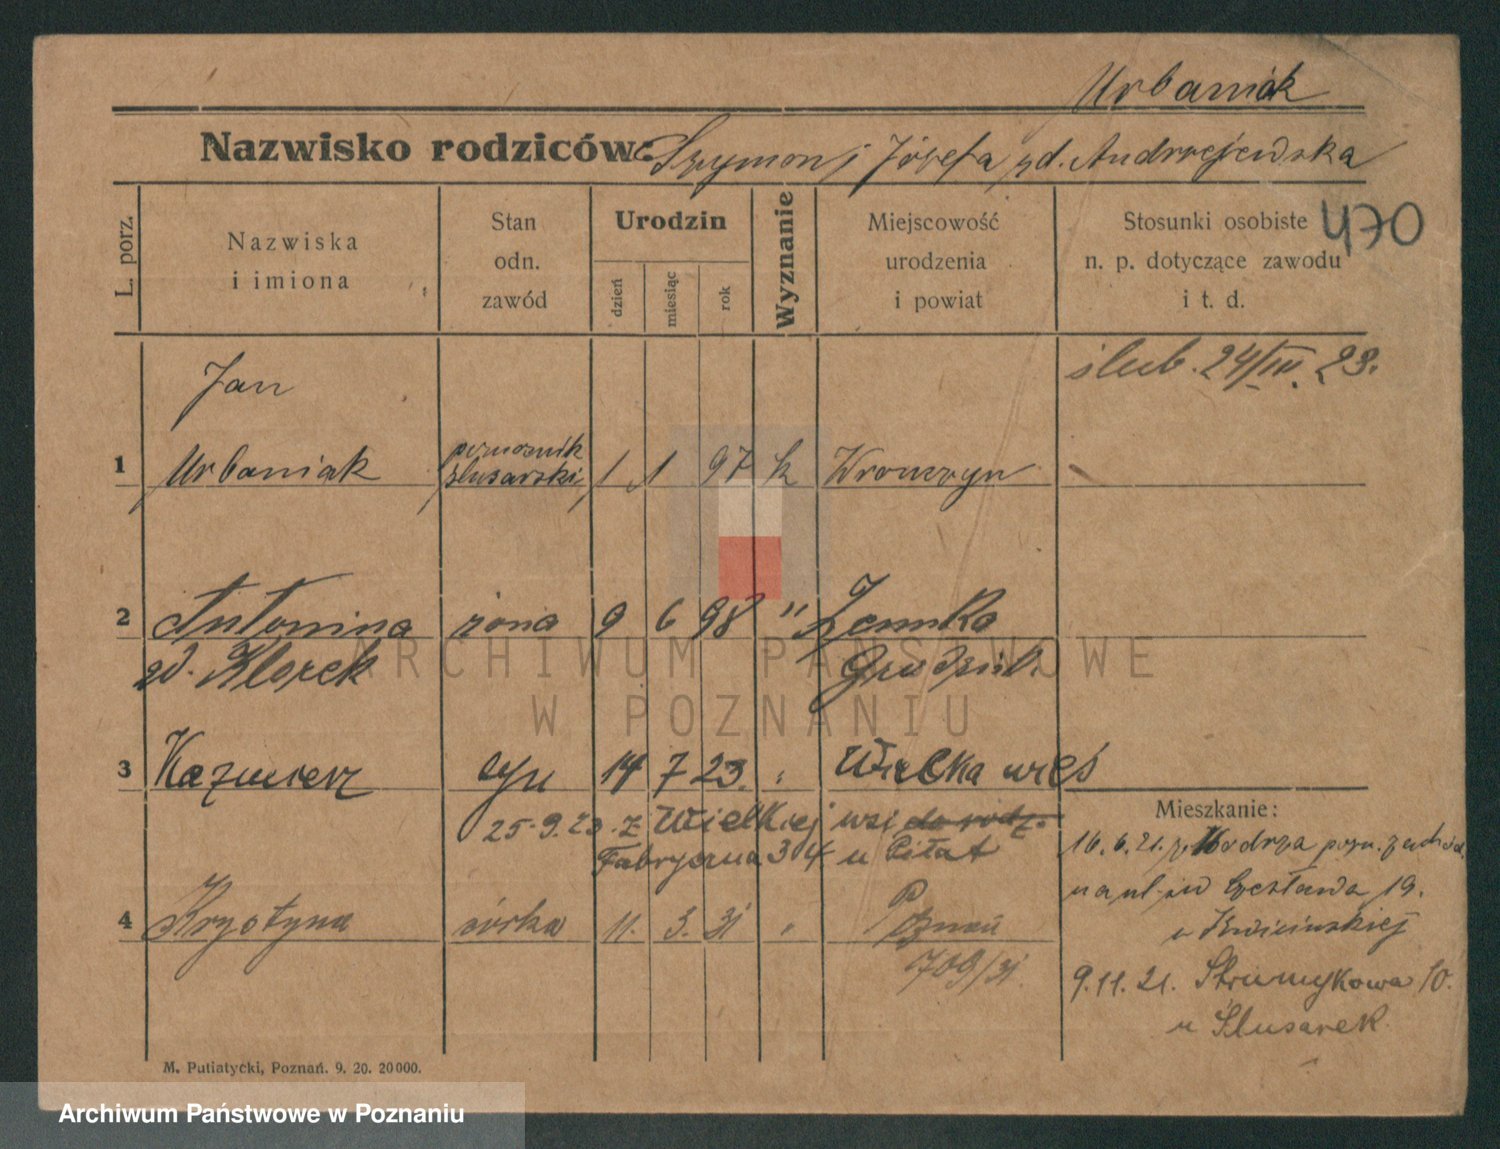 Urbaniak
Nazwisko rodziców: Szymon i Józefa zd. Andrzejewska
L. porz.
Nazwiska
i imiona
Stan
odn.
zawód
Urodzin
dzień
miesiąc
rok
Wyznanie
Miejscowość
urodzenia
i powiat
Stosunki osobiste
n. p. dotyczące zawodu
i t. d.
470
ślub. 24/IV. 23.
Jan
1 Urbaniak pomocnik ślusarski 1 1 97 k Wronczyn
2 Antonina żona 9 6 98 "
zd. Klorek
3 Kazmierz syn 14 7 23. " Wielka wieś
25.9.23. z Wielkiej wsi do rodz.
Fabryczna 34 u Piłat
4 Krystyna córka 11. 3. 31 " Poznań
709/31.
Mieszkanie:
16.6.21. z Modrza pozn. zachód.
na ul. św Czesława 19.
u Kwicińskiej
9.11.21. Strumykowa 10.
u Ślusarek
M. Putiatycki, Poznań. 9. 20. 20000.
ARCHIWUM PAŃSTWOWE
W POZNANIU
Archiwum Państwowe w Poznaniu